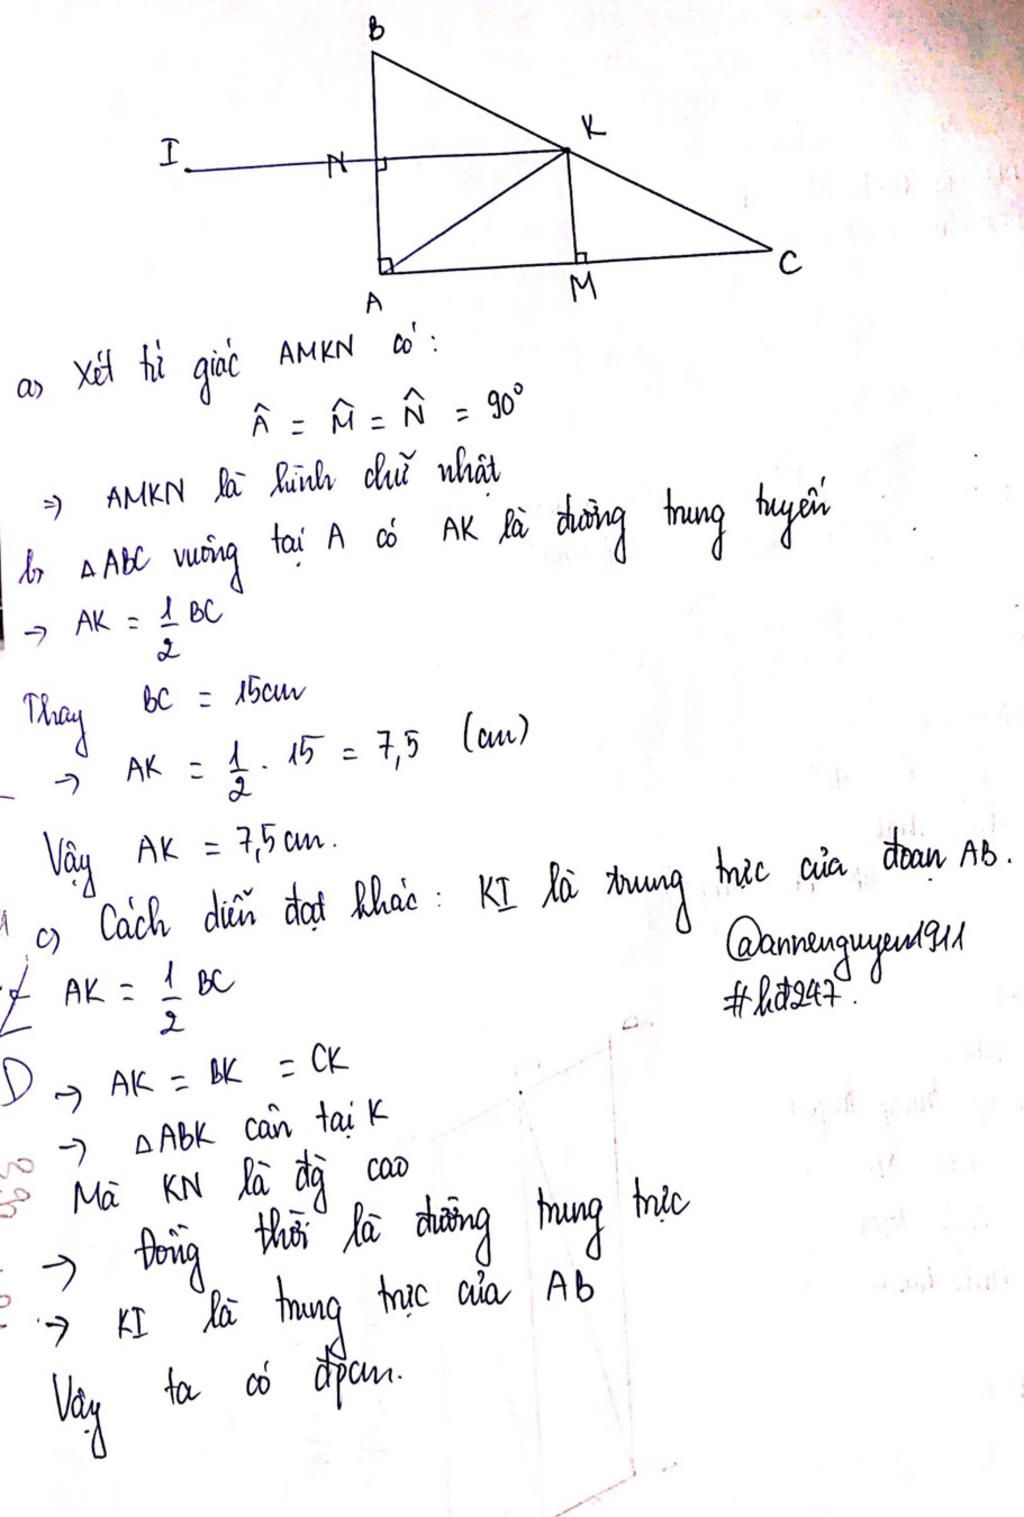 B
K
I
N
C
A
M
a) Xét tứ giác AMKN có:
Â = M̂ = N̂ = 90°
⇒ AMKN là hình chữ nhật
b) ΔABC vuông tại A có AK là đường trung tuyến
→ AK = 1/2 BC
Thay BC = 15cm
→ AK = 1/2 . 15 = 7,5 (cm)
Vậy AK = 7,5cm.
c) Cách diễn đạt khác: KI là trung trực của đoạn AB.
@annenguyen1911
#hđ247.
AK = 1/2 BC
→ AK = BK = CK
→ ΔABK cân tại K
Mà KN là đg̀ cao
→ Đồng thời là đường trung trực
→ KI là trung trực của AB
Vậy ta có đpcm.